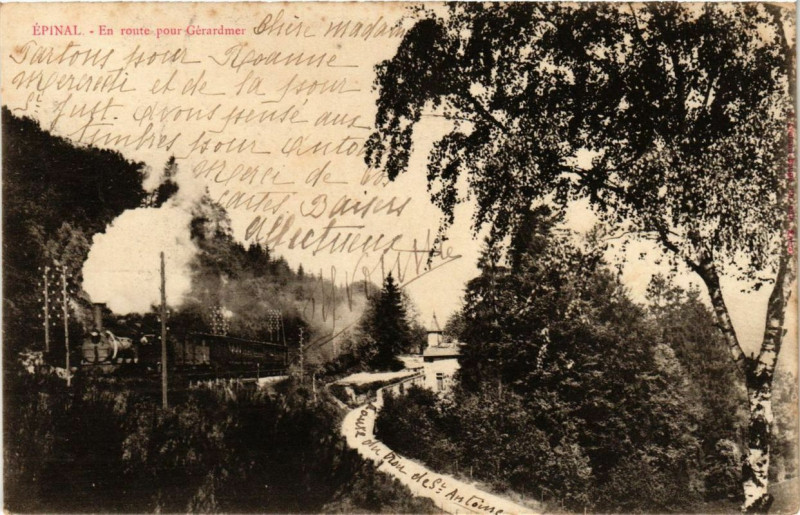 ÉPINAL. - En route pour Gérardmer
Chère madame
Partons pour Roanne
Mercredi et de la pour
St Just. Avons pensé aux
timbres pour Antoi
Merci de vos
cartes Baisers
affectueux
route du Don de St Antoine